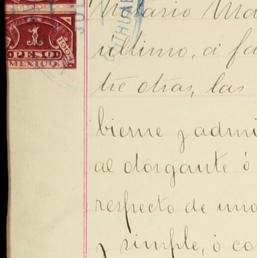 Notario Ma
ultimo, a fa
PESO
MEXICO
tre otras, las
bienes y admi
al otorgante ó
respecto de uno
y simple, ó co